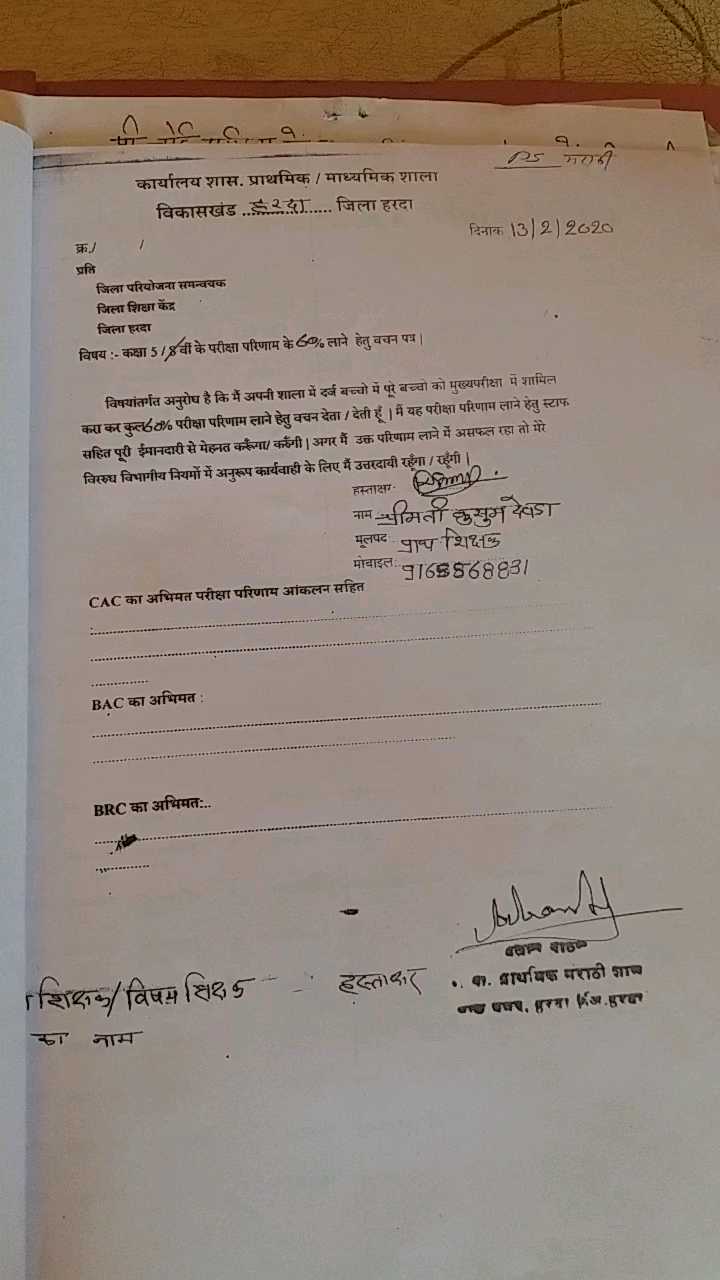 PS मराठी
कार्यालय शास. प्राथमिक / माध्यमिक शाला
विकासखंड ..हरदा...... जिला हरदा
दिनांक 13/2/2020
क्र./ /
प्रति
जिला परियोजना समन्वयक
जिला शिक्षा केंद्र
जिला हरदा
विषय :- कक्षा 5 / 8 वीं के परीक्षा परिणाम के 60% लाने हेतु वचन पत्र |
विषयांतर्गत अनुरोध है कि मैं अपनी शाला में दर्ज बच्चो में पूरे बच्चो को मुख्यपरीक्षा में शामिल
करा कर कुल 60% परीक्षा परिणाम लाने हेतु वचन देता / देती हूँ | मैं यह परीक्षा परिणाम लाने हेतु स्टाफ
सहित पूरी ईमानदारी से मेहनत करूँगा/ करुँगी | अगर मैं उक्त परिणाम लाने में असफल रहा तो मेरे
विरुध्ध विभागीय नियमों में अनुरूप कार्यवाही के लिए मैं उत्तरदायी रहूँगा / रहूँगी |
हस्ताक्षर-
नाम श्रीमती कुसुम देवडा
मूलपद प्राथ शिक्षक
मोबाइल:
CAC का अभिमत परीक्षा परिणाम आंकलन सहित
BAC का अभिमत :
BRC का अभिमत:..
शिक्षक/विषय शिक्षक हस्ताक्षर
का नाम
प्राथमिक मराठी शाला